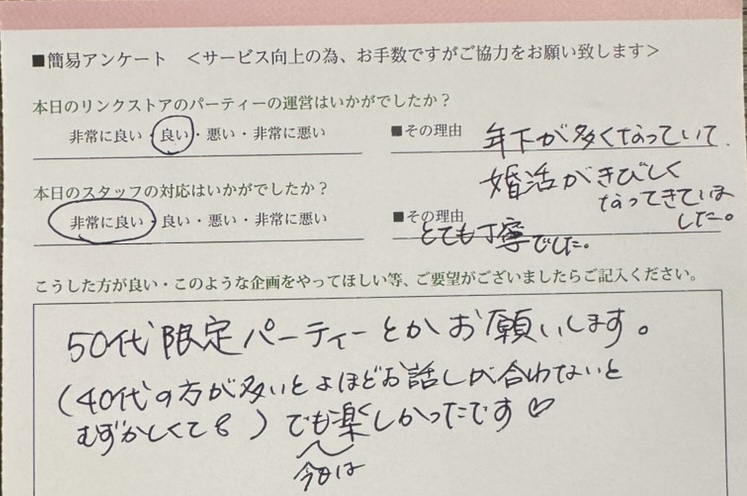 ■簡易アンケート ＜サービス向上の為、お手数ですがご協力をお願い致します＞
本日のリンクストアのパーティーの運営はいかがでしたか？
非常に良い・良い・悪い・非常に悪い
■その理由
年下が多くなっていて
婚活がきびしく
なってきていま
した。
本日のスタッフの対応はいかがでしたか？
非常に良い・良い・悪い・非常に悪い
■その理由
とても丁寧でした。
こうした方が良い・このような企画をやってほしい等、ご要望がございましたらご記入ください。
50代限定パーティーとかお願いします。
（40代の方が多いとよほどお話しが合わないと
むずかしくて）でも楽しかったです♡
今日は